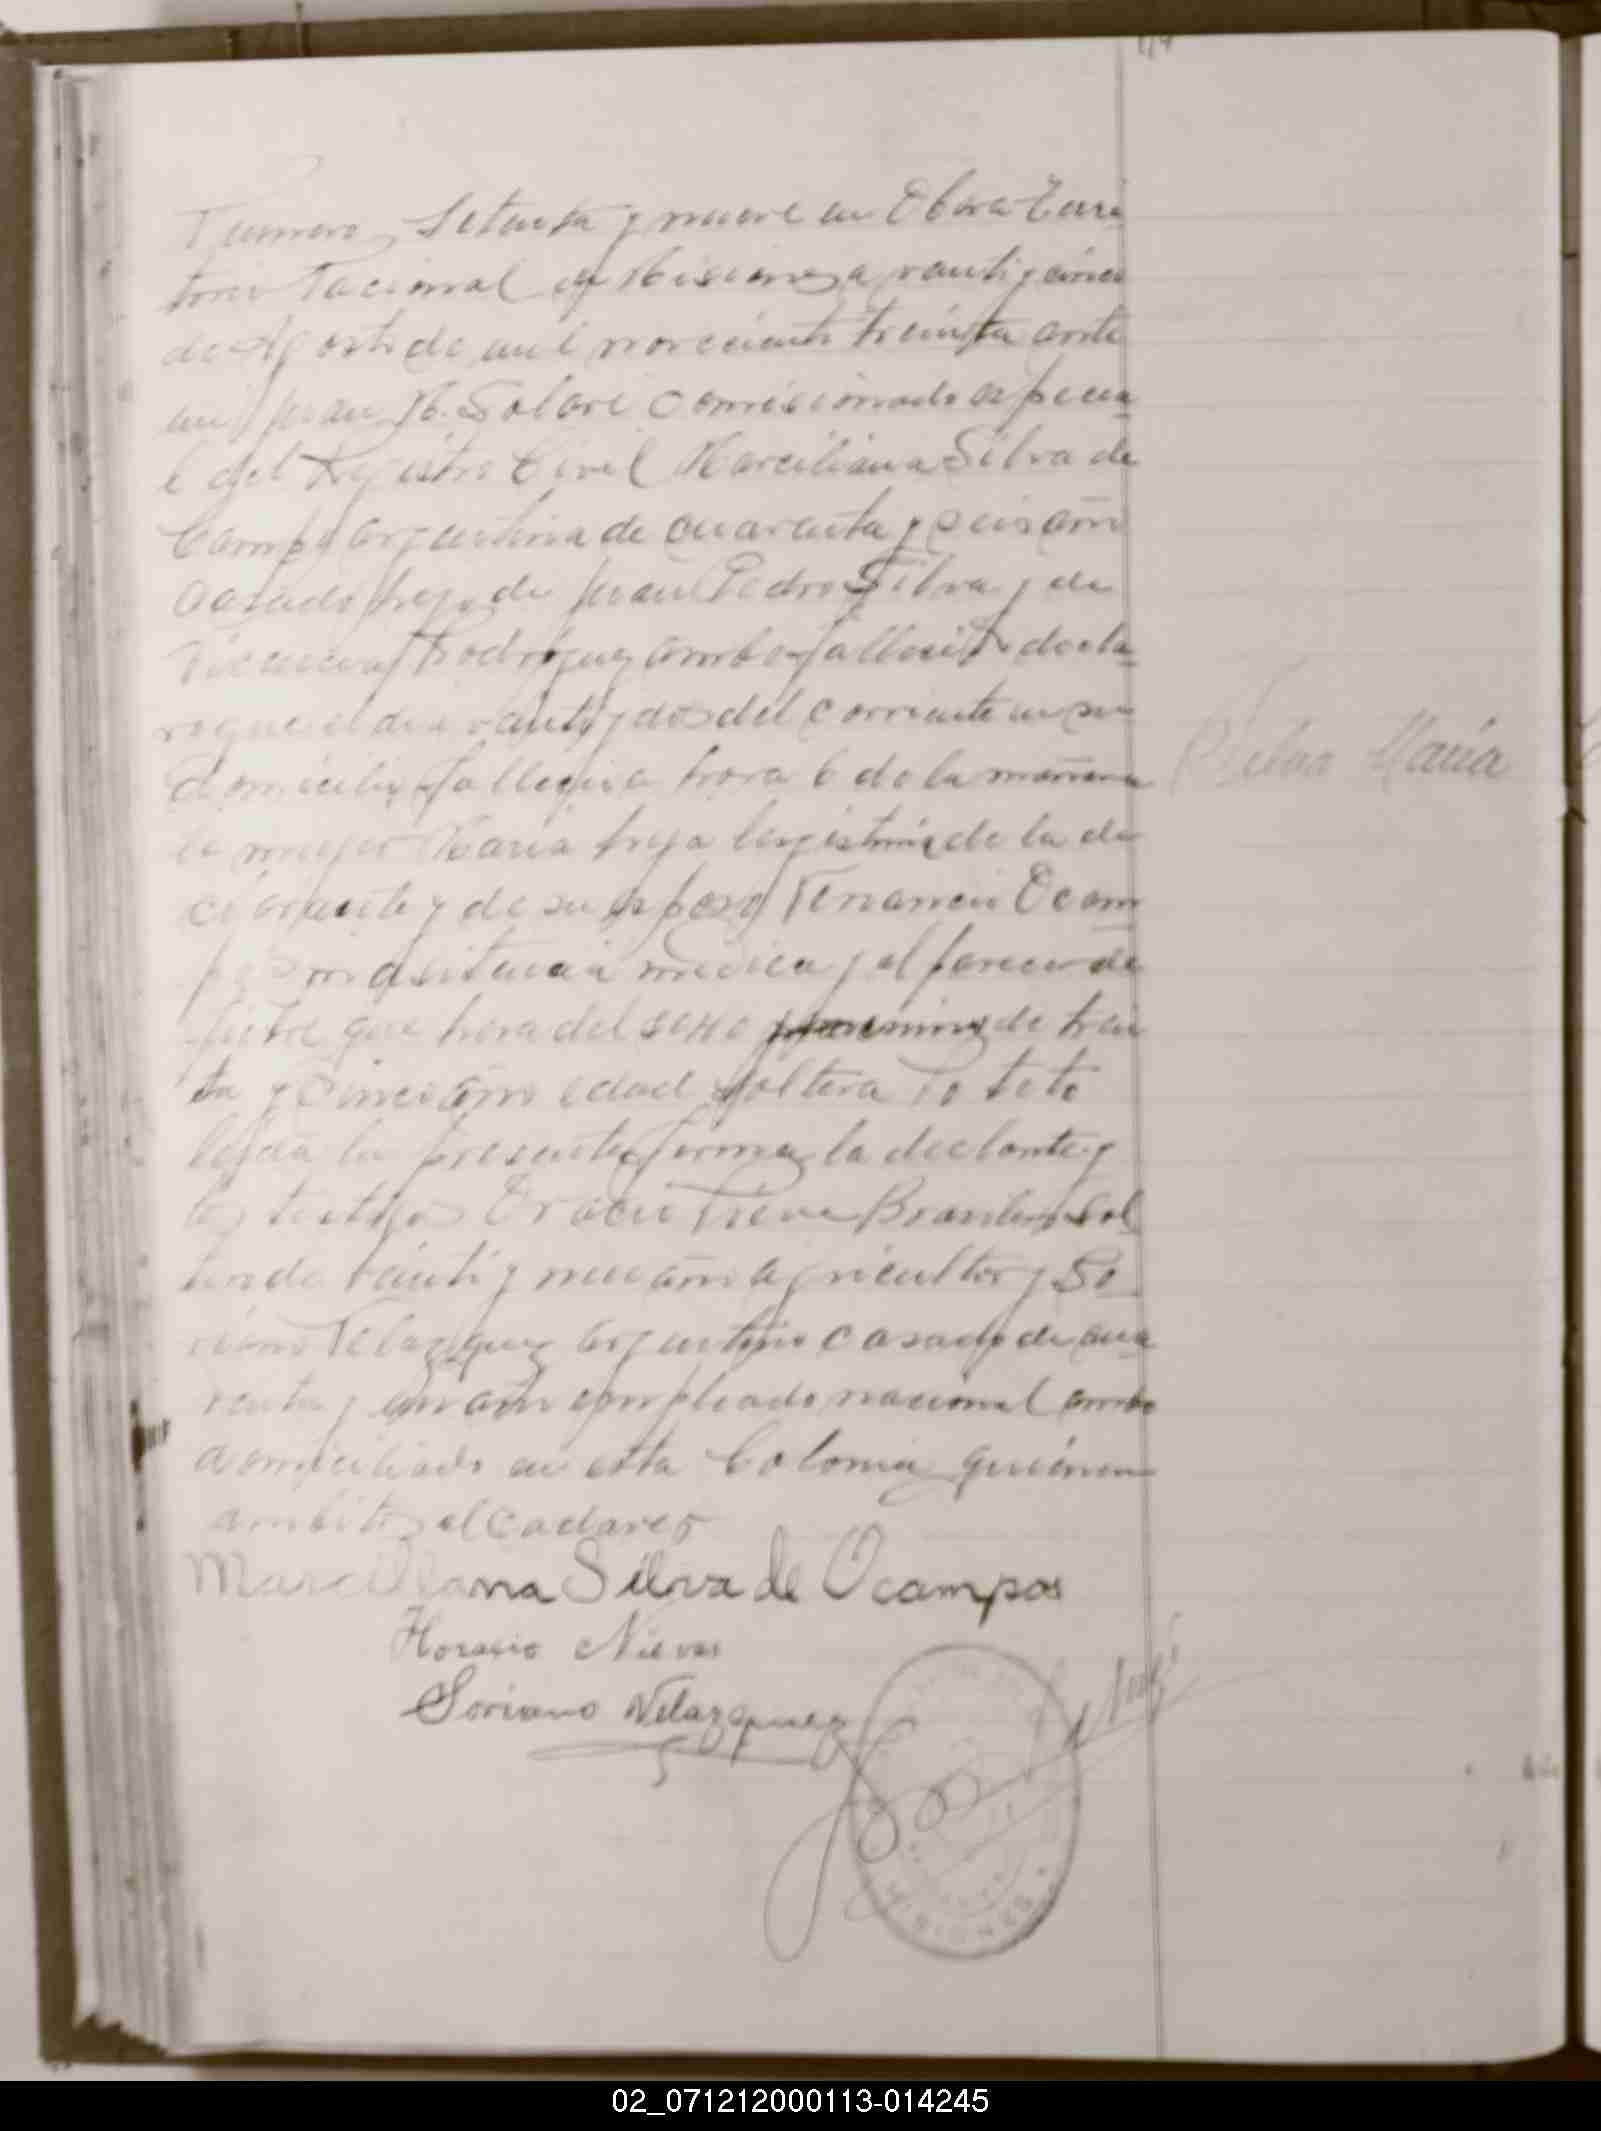 Numero Setenta y nueve en Obera Terri
torio Nacional de Misiones a veinti y cinco
de Agosto de mil novecientos treinta ante
mi Juan M. Solari Comisionado especia
l del Registro Civil Marciliana Silva de
Campo argentina de cuarenta y seis años
casado hija de Juan Pedro Silva y de
Rodriguez ambos fallecido decla
ro que el dia veinti y dos del corriente en su
domicilio fallecio a hora 6 de la mañana
la mujer Maria hija legistima de la de
clarante y de su esposo Venancio Ocam
pos sin asistencia medica y al parecer de
fiebre que hera del sexo femenino de trein
ta y cinco años edad soltera
leida la presente firma la declante y
los testigos Oracio Nieve Brasilero sol
tero de veinti y nueve años agricultor y So
riano Velazquez argentino casado de cua
renta y un años empleado nacional ambo
domiciliado en esta Colonia quienen
ambito el cadarer
Marcilliana Silva de Ocampos
Horasio Nieves
Soriano Velazquez
Maria
MISIONES
02_071212000113-014245